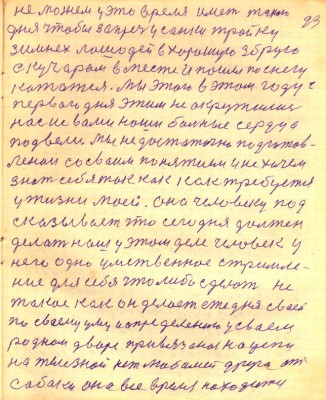 не можем у это время имет такого
93
дня чтобы запреч у санки тройку
зимнех лошодей в хорошую збрую
с кучаром вместе и пошли по снегу
кататся. Мы этого в этом году с
первого дня этим не окружились
нас не вами наши больные сердца
подвели мы недостаточно подготов-
лении со своим понятием и не хочем
знат себя так как как требуется
у жизни моей. она человеку под
сказывает что сегодня должен
делат наш у этом деле человек у
него одно умственное стримле-
ние для себя что либо сделат не
такое как он делает ежедня своей
по своему уму и определению у своем
родном дворе привязаной на цепи
на железной нет любимей друга от
собаки она все время находится